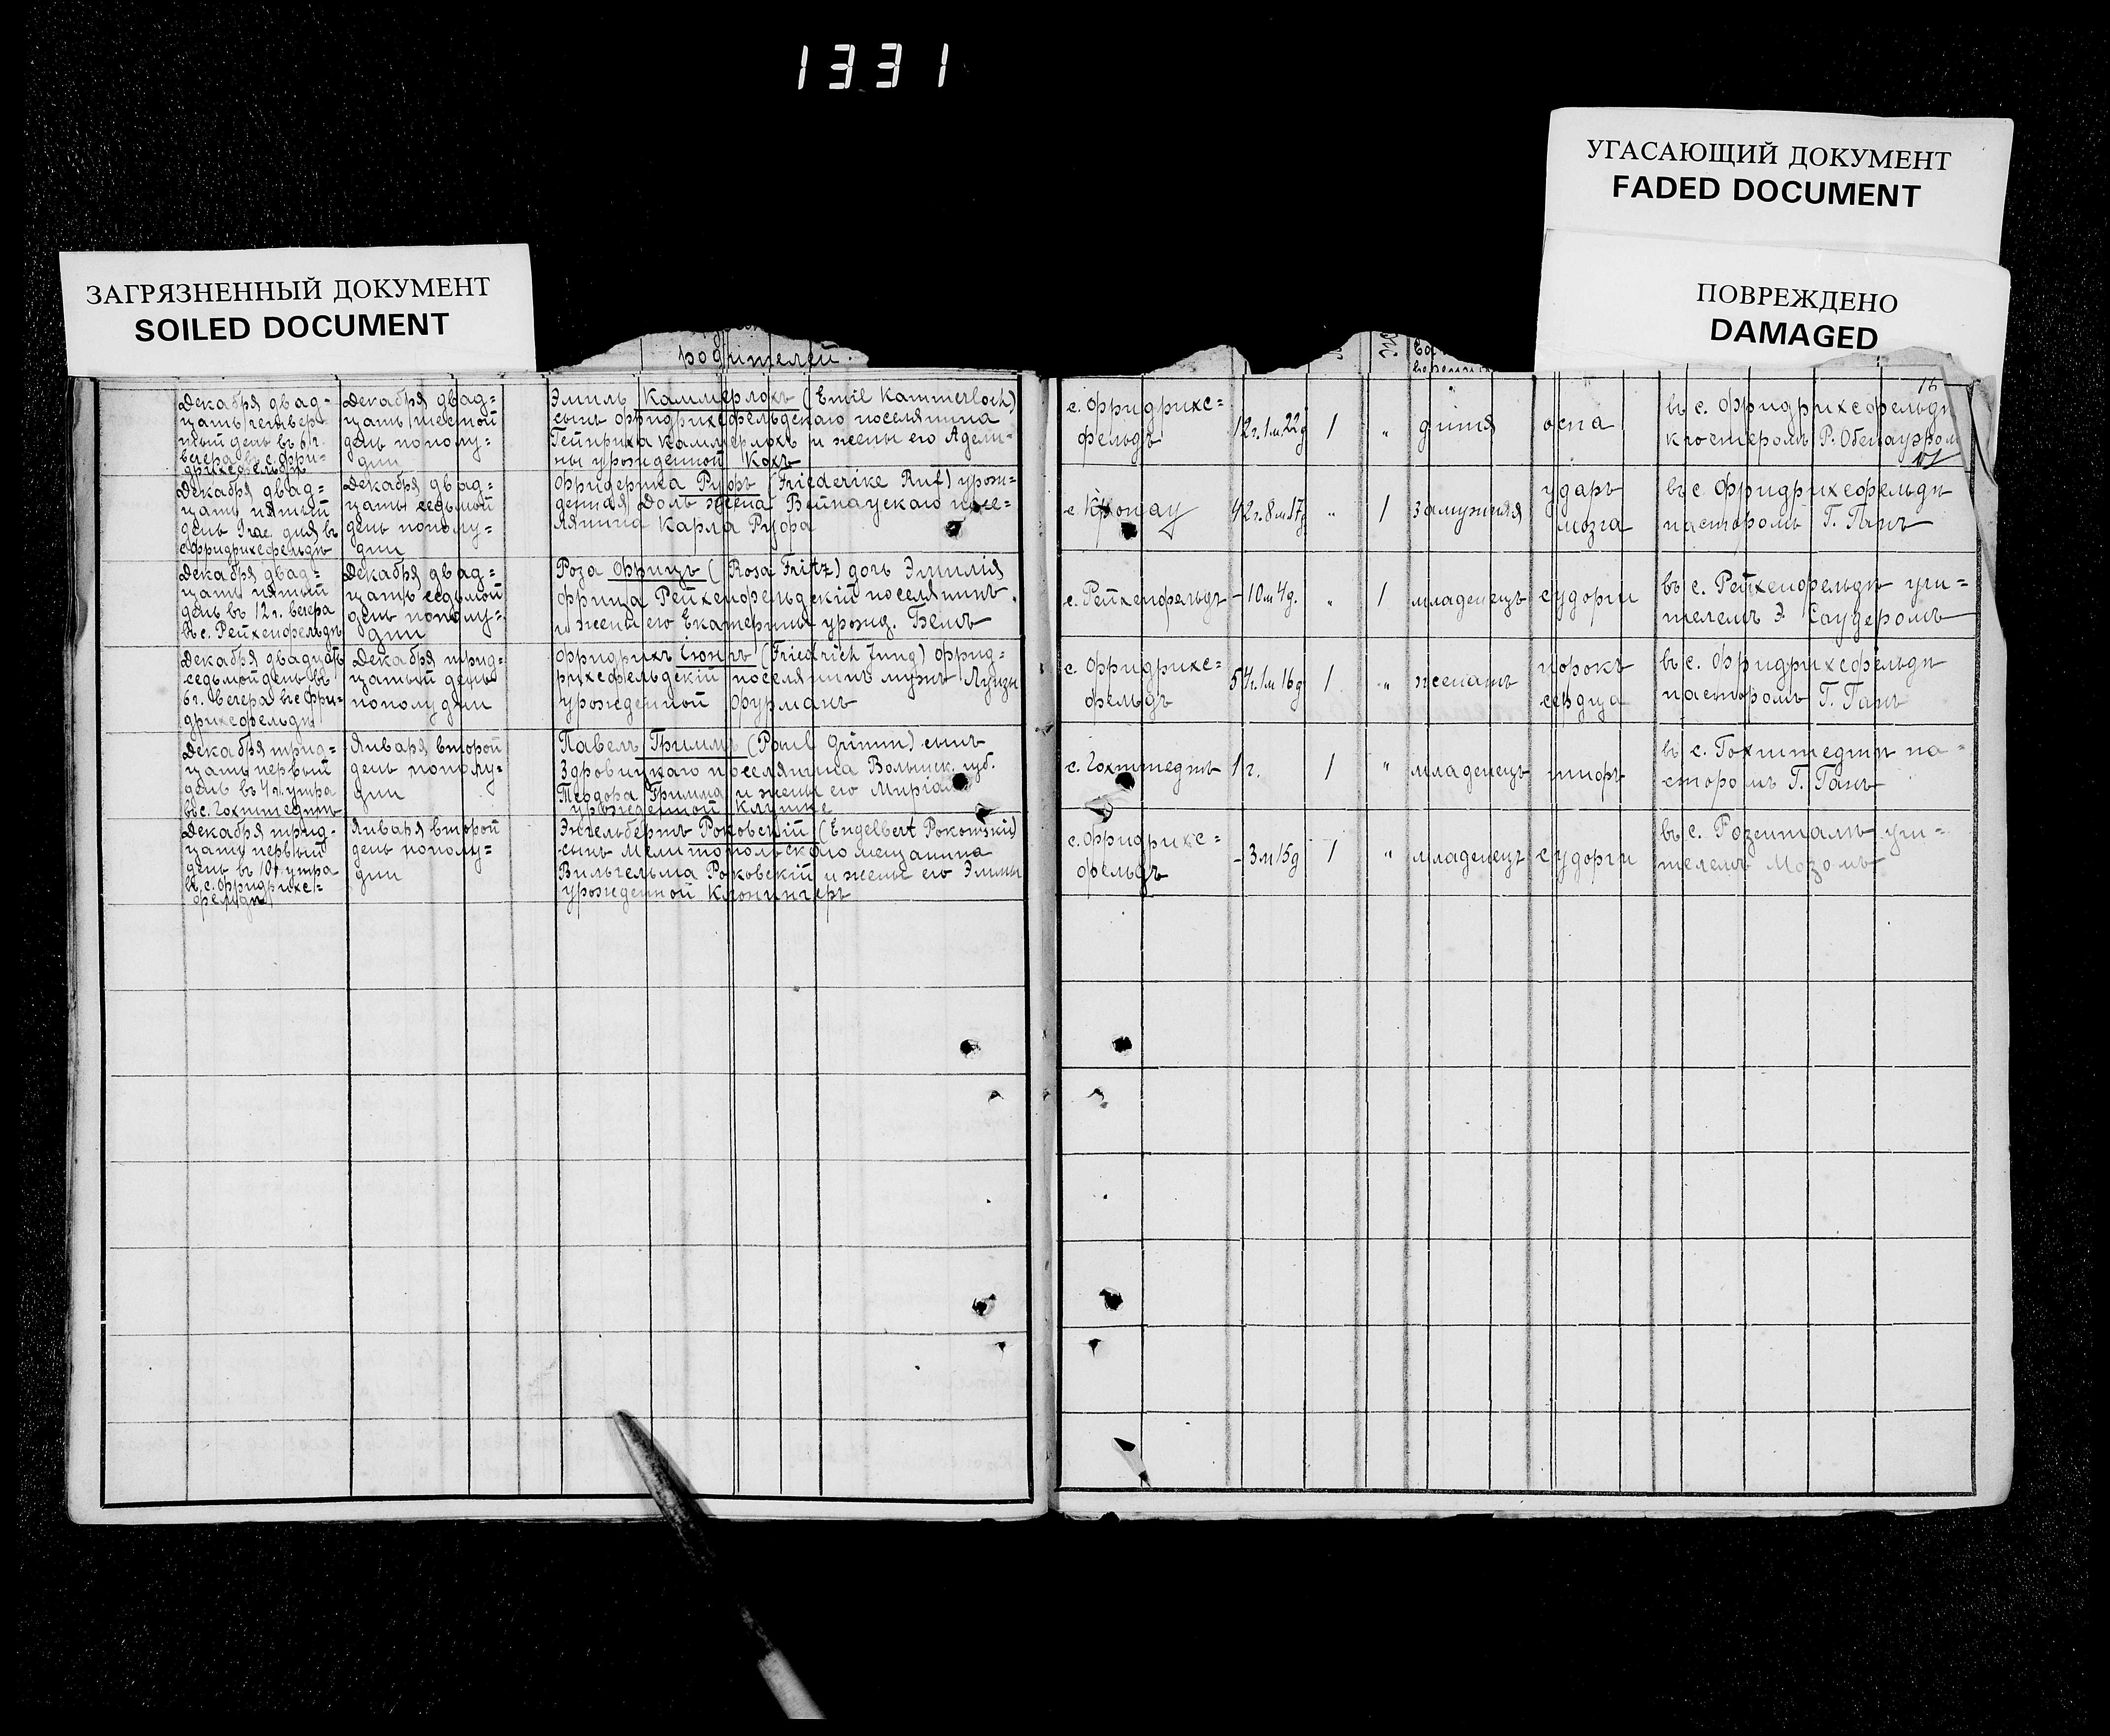 1331
УГАСАЮЩИЙ ДОКУМЕНТ
FADED DOCUMENT
ПОВРЕЖДЕНО
DAMAGED
ЗАГРЯЗНЕННЫЙ ДОКУМЕНТ
SOILED DOCUMENT
родителей.
Декабря двад-
цать четвер
тый день въ 6 ч.
вечера въ с. Фри-
дрихсфельдѣ
Декабря двад=
цать шестой
день пополу=
дни
Эмиль Каммерлохъ (Emil Kammerloch)
сынъ Фридрихсфельдскаго поселянина
Гейнриха Каммерлохъ и жены его Адели-
ны урожденной Кохъ
с. Фридрихс=
фельдъ
12 г. 1 м. 22 д
1
"
дитя
оспа
въ с. Фридрихсфельдѣ
кистеромъ Р.
16
Декабря двад=
цать пятый
день дня въ
с. Фридрихсфельдѣ
Декабря двад=
цать седьмой
день пополу=
дни
Фридерика Руфъ (Friederike Ruf) урож-
денная Доль жена Вейнаускаго посе=
лянина Карла Руфа
с. Кронау
42 г. 8 м 17 д
"
1
замужняя
ударъ
мозга
въ с. Фридрихсфельдѣ
пасторомъ Г. Ганъ
Декабря двад=
цать пятый
день въ 12 г. вечера
въ с. Рейхенфельдѣ
Декабря двад=
цать седьмой
день пополу=
дни
Роза Фрицъ (Rosa Fritz) дочь Эмилія
Фрица Рейхенфельдскій поселянинъ
и жены его Екатерины урожд. Бемъ
с. Рейхенфельдъ
- 10 м 4 д.
"
1
младенецъ
судорги
въ с. Рейхенфельдѣ учи=
телемъ Э. Саудеромъ
Декабря двадцать
седьмой день въ
6 г. вечера въ с Фри-
дрихсфельдѣ
Декабря трид=
цатый день
пополудни
Фридрихъ Іюнгъ (Friedrich Jung) Фрид=
рихсфельдскій поселянинъ мужъ Луизы
урожденной Фурманъ
с. Фридрихс=
фельдъ
54 г. 1 м 16 д
1
"
женатъ
порокъ
сердца
въ с. Фридрихсфельдѣ
пасторомъ Г. Ганъ
Декабря трид=
цать первый
день въ 4 г. утра
въ с. Гохштедтѣ
Января второй
день пополу=
дни
Павелъ Гриммъ (Paul Grimm) сынъ
Здровицкаго поселянина Волынск. губ.
Теодора Гримма и жены его
урожденной
с. Гохштедтъ
1 г.
1
"
младенецъ
тифъ
въ с. Гохштедтѣ па=
сторомъ Г. Ганъ
Декабря трид-
цать первый
день въ 10 г. утра
въ с. Фридрихс=
фельдѣ
Января второй
день пополу=
дни
Энгельбертъ Роковскій (Engelbert Rokowski)
сынъ Мелитопольскаго мещанина
Вильгельма Роковскій и жены его Эммы
урожденной Кронингеръ
с. Фридрихс=
фельдъ
- 3 м 15 д
1
"
младенецъ
судорги
въ с. Розенталь учи=
телемъ Мозомъ